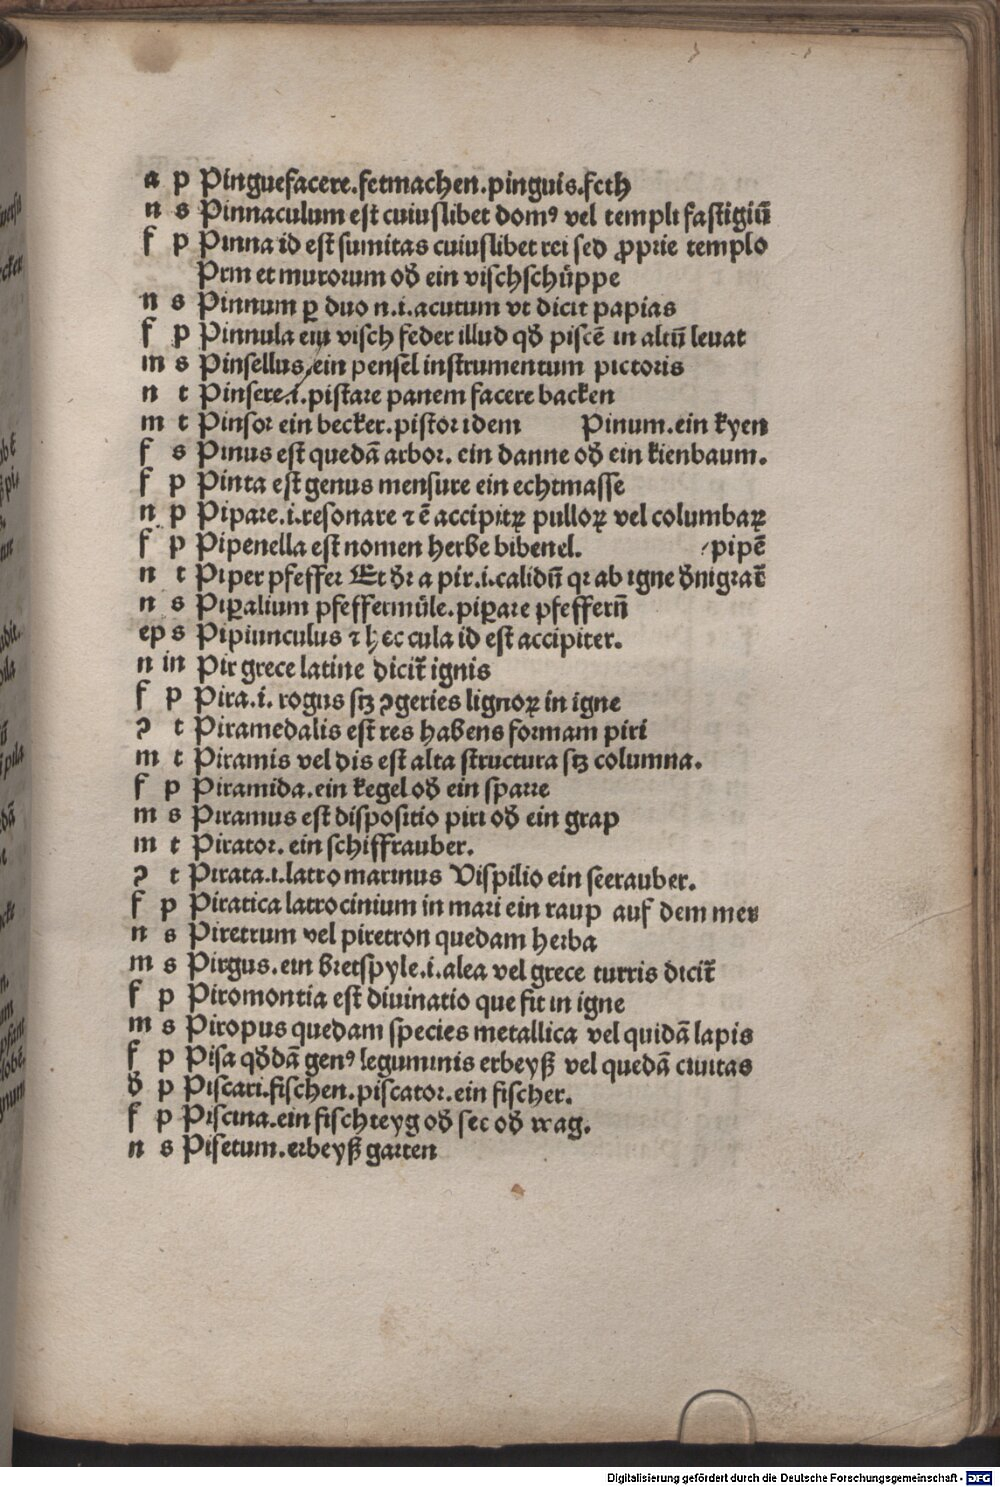 a p Pinguefacere.fetmachen.pinguis.feth
n s Pinnaculum eſt cuiuslibet domꝰ vel templi faſtigiū
f p Pinna id eſt ſumitas cuiuslibet rei ſed ꝓprie templo
Prm et murorum od̕ ein viſchſchüppe
n s Pinnum ꝑ duo n.i.acutum vt dicit papias
f p Pinnula ein viſch feder illud qd̕ piſcē in altū leuat
m s Pinſellus,ein penſel inſtrumentum pictoris
n t Pinſere.i.piſtare panem facere backen
m t Pinſor ein becker.piſtor idem Pinum.ein kyen
f s Pinus eſt quedā arbor. ein danne od̕ ein kienbaum.
f p Pinta eſt genus menſure ein echtmaſſe
n p Pipare.i.reſonare ⁊ ē accipitꝝ pulloꝝ vel columbaꝝ
f p Pipenella eſt nomen herbe bibenel. pipē
n t Piper pfeffer Et dr̕ a pir.i.calidū qr ab igne d̕nigrat̄
n s Piꝑalium pfeffermüle.piꝑare pfefferū
ep s Pipiunculus ⁊ hec cula id eſt accipiter.
n in Pir grece latine dicit̄ ignis
f p Pira.i. rogus ſꝫ ꝯgeries lignoꝝ in igne
ꝯ t Piramedalis eſt res habens formam piri
m t Piramis vel dis eſt alta ſtructura ſꝫ columna.
f p Piramida.ein kegel od̕ ein ſparre
m s Piramus eſt diſpoſitio piri od̕ ein grap
m t Pirator. ein ſchiffrauber.
ꝯ t Pirata.i.latro marinus Viſpilio ein ſeerauber.
f p Piratica latrocinium in mari ein raup auf dem mer
n s Piretrum vel piretron quedam herba
m s Pirgus.ein bretſpyle.i.alea vel grece turris dicit̄
f p Piromontia eſt diuinatio que fit in igne
m s Piropus quedam ſpecies metallica vel quidā lapis
f p Piſa qd̕dā genꝰ leguminis erbeyß vel quedā ciuitas
d̕ p Piſcari.fiſchen.piſcator.ein fiſcher.
f p Piſcina.ein fiſchteyg od̕ ſee od̕ wag.
n s Piſetum.erbeyß garten
Digitalisierung gefördert durch die Deutsche Forschungsgemeinschaft - DFG